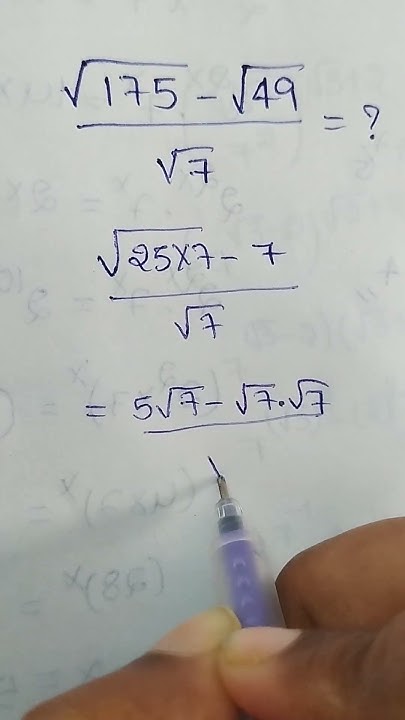 √175 - √49
———— = ?
√7
√25×7 - 7
————
√7
= 5√7 - √7·√7
————